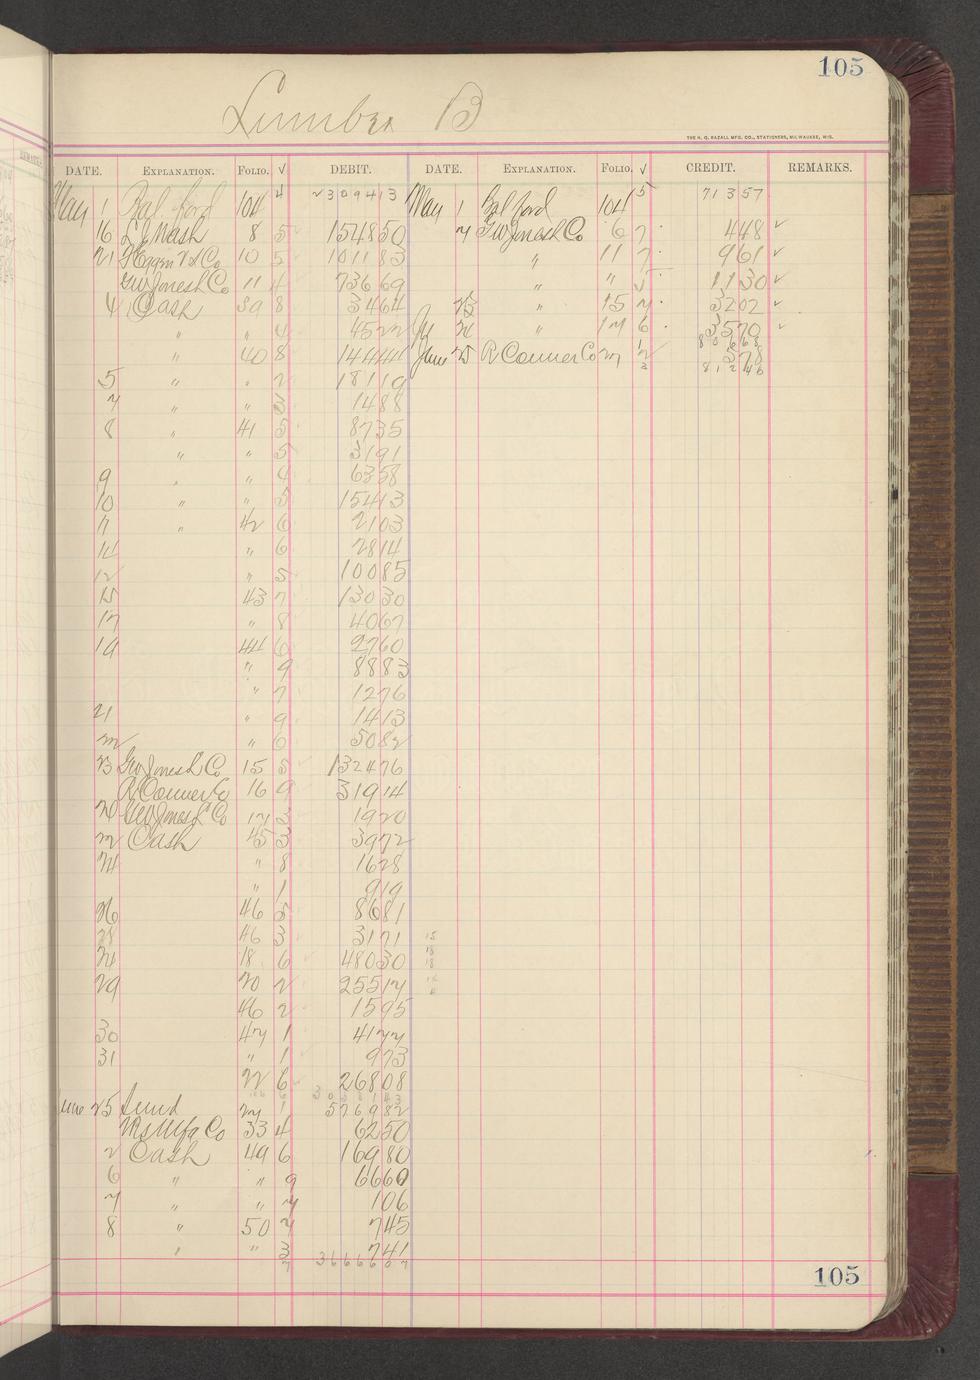 105
Lumber B
THE H. G. RAZALL MFG. CO., STATIONERS, MILWAUKEE, WIS.
DATE. EXPLANATION. FOLIO. √ DEBIT. DATE. EXPLANATION. FOLIO. √ CREDIT. REMARKS.
May 1 Bal. ford 104 4 2309413 May 1 Bal ford 104 5 71357
16 Nash 8 5 154850 7 GW Jones L Co 6 7 448 ✓
21 10 5 101183 " 11 7 961 ✓
GW Jones L Co 11 4 73669 " " 5 1130 ✓
4 Cash 39 8 3464 " 15 3202 ✓
" " 4522 " 6 3570 ✓
80668
" 40 8 14444 June 25 R Conner Co 578
81246
5 " " 2 18119
7 " " 3 1488
8 " 41 5 8735
" " 5 3191
9 " " 4 6358
10 " " 5 15413
11 " 42 6 2103
14 " 6 2814
12 " 5 10085
15 43 7 13030
17 " 8 4067
19 44 6 2760
" 9 8883
" 7 1276
21 " 9 1413
22 " 6 5082
23 GW Jones L Co 15 5 132476
R Conner Co 16 9 31914
GW Jones L Co 17 3 1920
22 Cash 45 3 3972
24 " 8 1628
" 1 919
26 46 5 8681
28 46 3 3171
18 6 48030
29 20 2 25517
46 2 1595
30 47 1 4177
31 " 1 973
22 6 26808
June 25 Sund 27 1 576982
Mfg Co 33 4 6250
2 Cash 49 6 16980
6 " " 9 6660
7 " " 7 106
8 " 50 7 745
" " 3 741
7 3666607
105